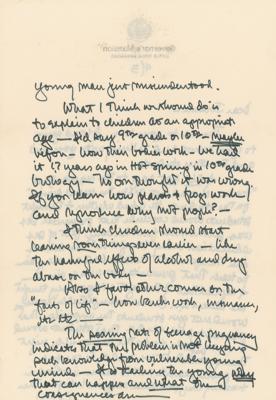 young man just misunderstood.
What I think we should do is
to explain to children at an appropriate
age — I'd say 9th grade or 10th — maybe
before — how their bodies work — We had
it 17 years ago in Hot Springs in 10th grade
biology — no one thought it was wrong.
If you learn how plants & frogs work
(and reproduce) why not people? —
I think children should start
learning some things even earlier — like
the harmful effects of alcohol and drug
abuse on the body —
Also I favor other courses on the
"facts of life" — how banks work, insurance,
etc. etc. —
The soaring rate of teenage pregnancy
indicates that the problem is not keeping
such knowledge from vulnerable young
minds — It is teaching the young why
that can happen and what the
consequences are —